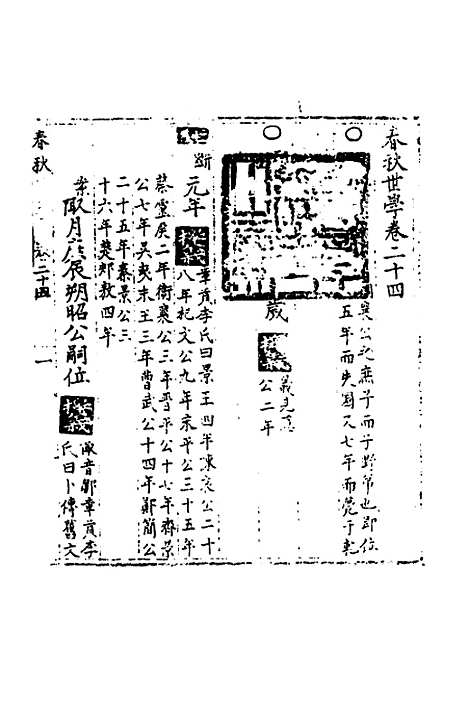 春秋世學卷二十四
襄公之庶子而子野弟也即位
五年而失國又七年而薨于乾
歲
義見隱
公二年
元年
章茂李氏曰景王四年陳哀公二十
八年杞文公九年宋平公三十五年
蔡靈侯二年衛襄公三年晉平公十七年齊景
公七年吳夷末王三年曹武公十四年鄭簡公
二十五年秦景公三
十六年楚郟敖四年
月庚辰朔昭公嗣位
陬音鄒章茂李
氏曰卜傳舊文
春秋
卷二十四
一